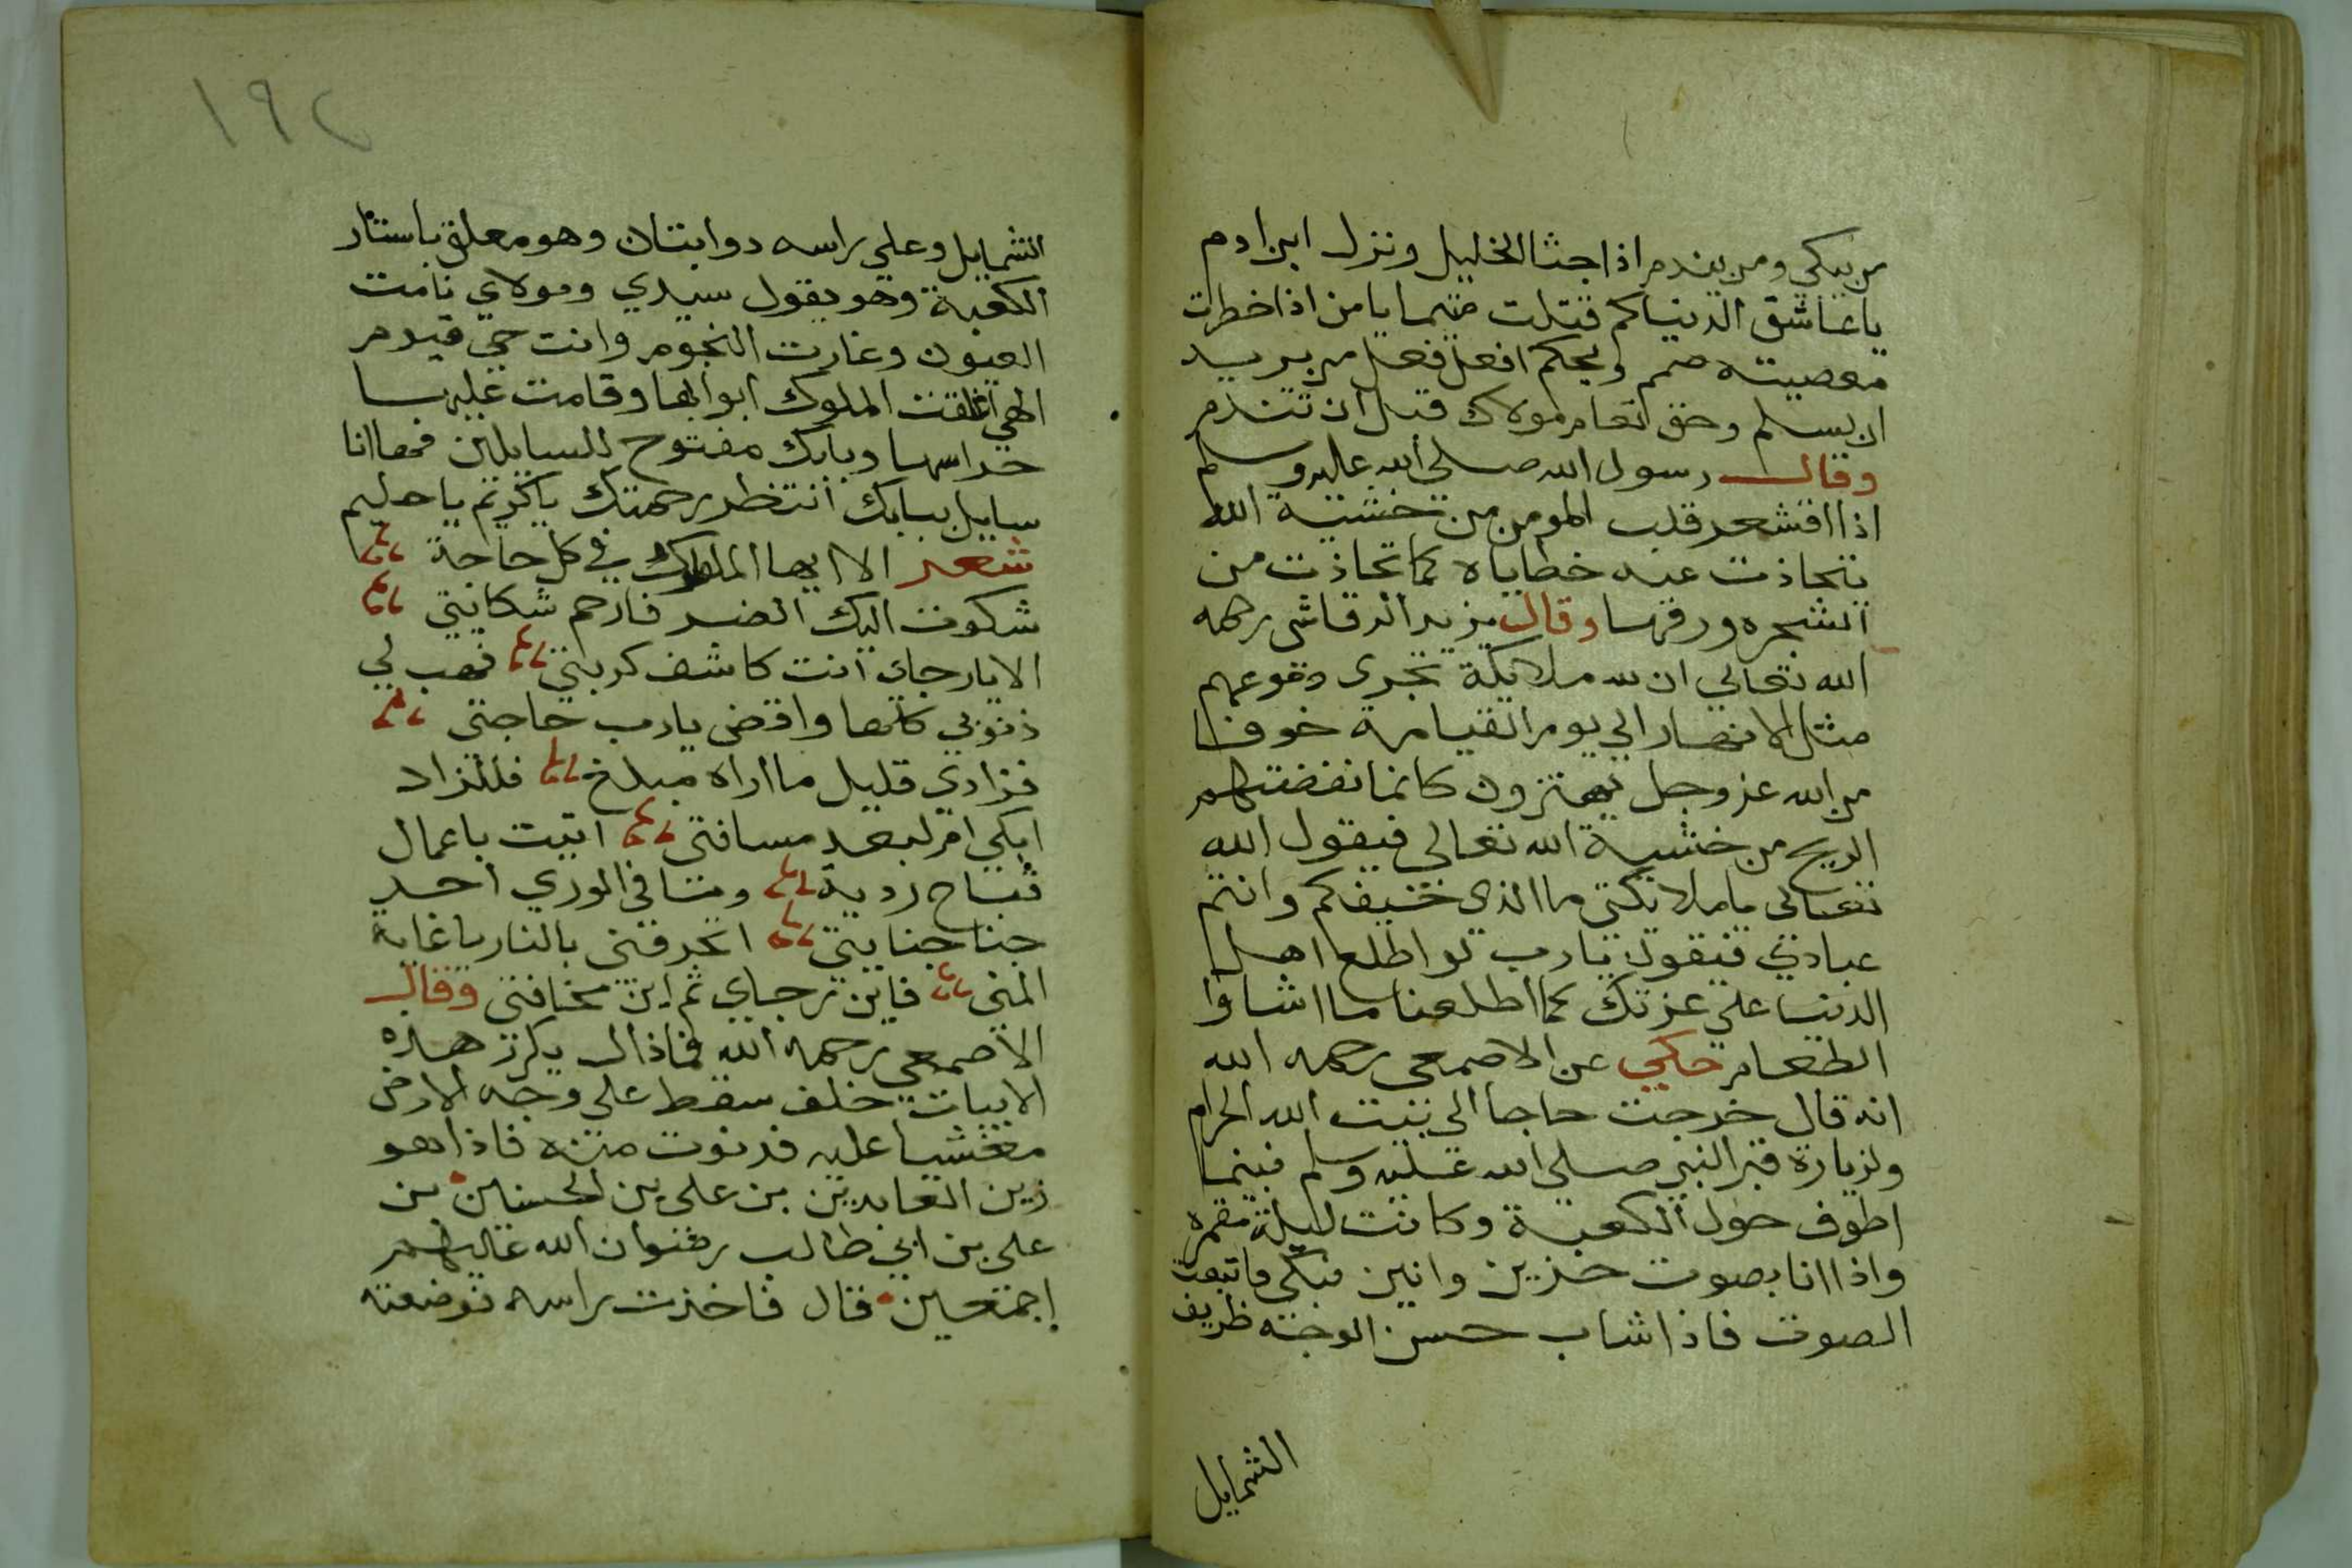 من يبكي ومن يندم اذا جثا الخليل ونزل ابن ادم
يا عاشق الدنيا كم قتلت متيما يا من اذا خطرت
معصيته صمم ويحكم افعل فعل من يريد
ان يسلم وخف انتقام مولاك قبل ان تندم
وقال رسول الله صلى الله عليه وسلم
اذا اقشعر قلب المومن من خشية الله
تحاذت عنه خطاياه كما تحاذت من
الشجره ورقها وقال يزيد الرقاشى رحمه
الله تعالي ان لله ملايكة تجرى دموعهم
مثل الانهار الي يوم القيامة خوفا
من الله عز وجل يهتزون كانما نفضتهم
الريح من خشية الله تعالى فيقول الله
تعالى يا ملايكتى ما الذى خيفكم وانتم
عبادي فيقولون يارب لو اطلع اهل
الدنيا علي عزتك كما اطلعنا ما اشاوا
الطعام حكي عن الاصمعى رحمه الله
انه قال خرجت حاجا الى بيت الله الحرام
ولزيارة قبر النبي صلى الله عليه وسلم فبينما
اطوف حول الكعبة وكانت ليلة مقمره
واذا انا بصوت حزين وانين مبكي فاتبعت
الصوت فاذا شاب حسن الوجه ظريف
الشمايل
١٩٢
الشمايل وعلي راسه دوابتان وهو معلق باستار
الكعبة وهو يقول سيدي ومولاي نامت
العيون وغارت النجوم وانت حي قيوم
الهي اغلقت الملوك ابوابها وقامت عليها
حراسها وبابك مفتوح للسايلين فها انا
سايل ببابك انتظر رحمتك ياكريم ياحليم
شعر الا ايها المامول في كل حاجة
شكوت اليك الضر فارحم شكايتي
الا يارجاي انت كاشف كربتي فهب لي
ذنوبي كلها واقض يارب حاجتي
فزادي قليل ما اراه مبلغ فللزاد
ابكي ام لبعد مسافتي اتيت باعمال
قباح ردية وما في الوري احد
جنا جنايتي اتحرقني بالنار ياغاية
المنى فاين رجاي ثم اين مخافتي وقال
الاصمعي رحمه الله فماذال يكرر هذه
الابيات خلف سقط علي وجه الارض
مغشيا عليه فدنوت منه فاذا هو
زين العابدين بن علي بن الحسين بن
علي بن ابي طالب رضوان الله عليهم
اجمعين قال فاخذت راسه فوضعته